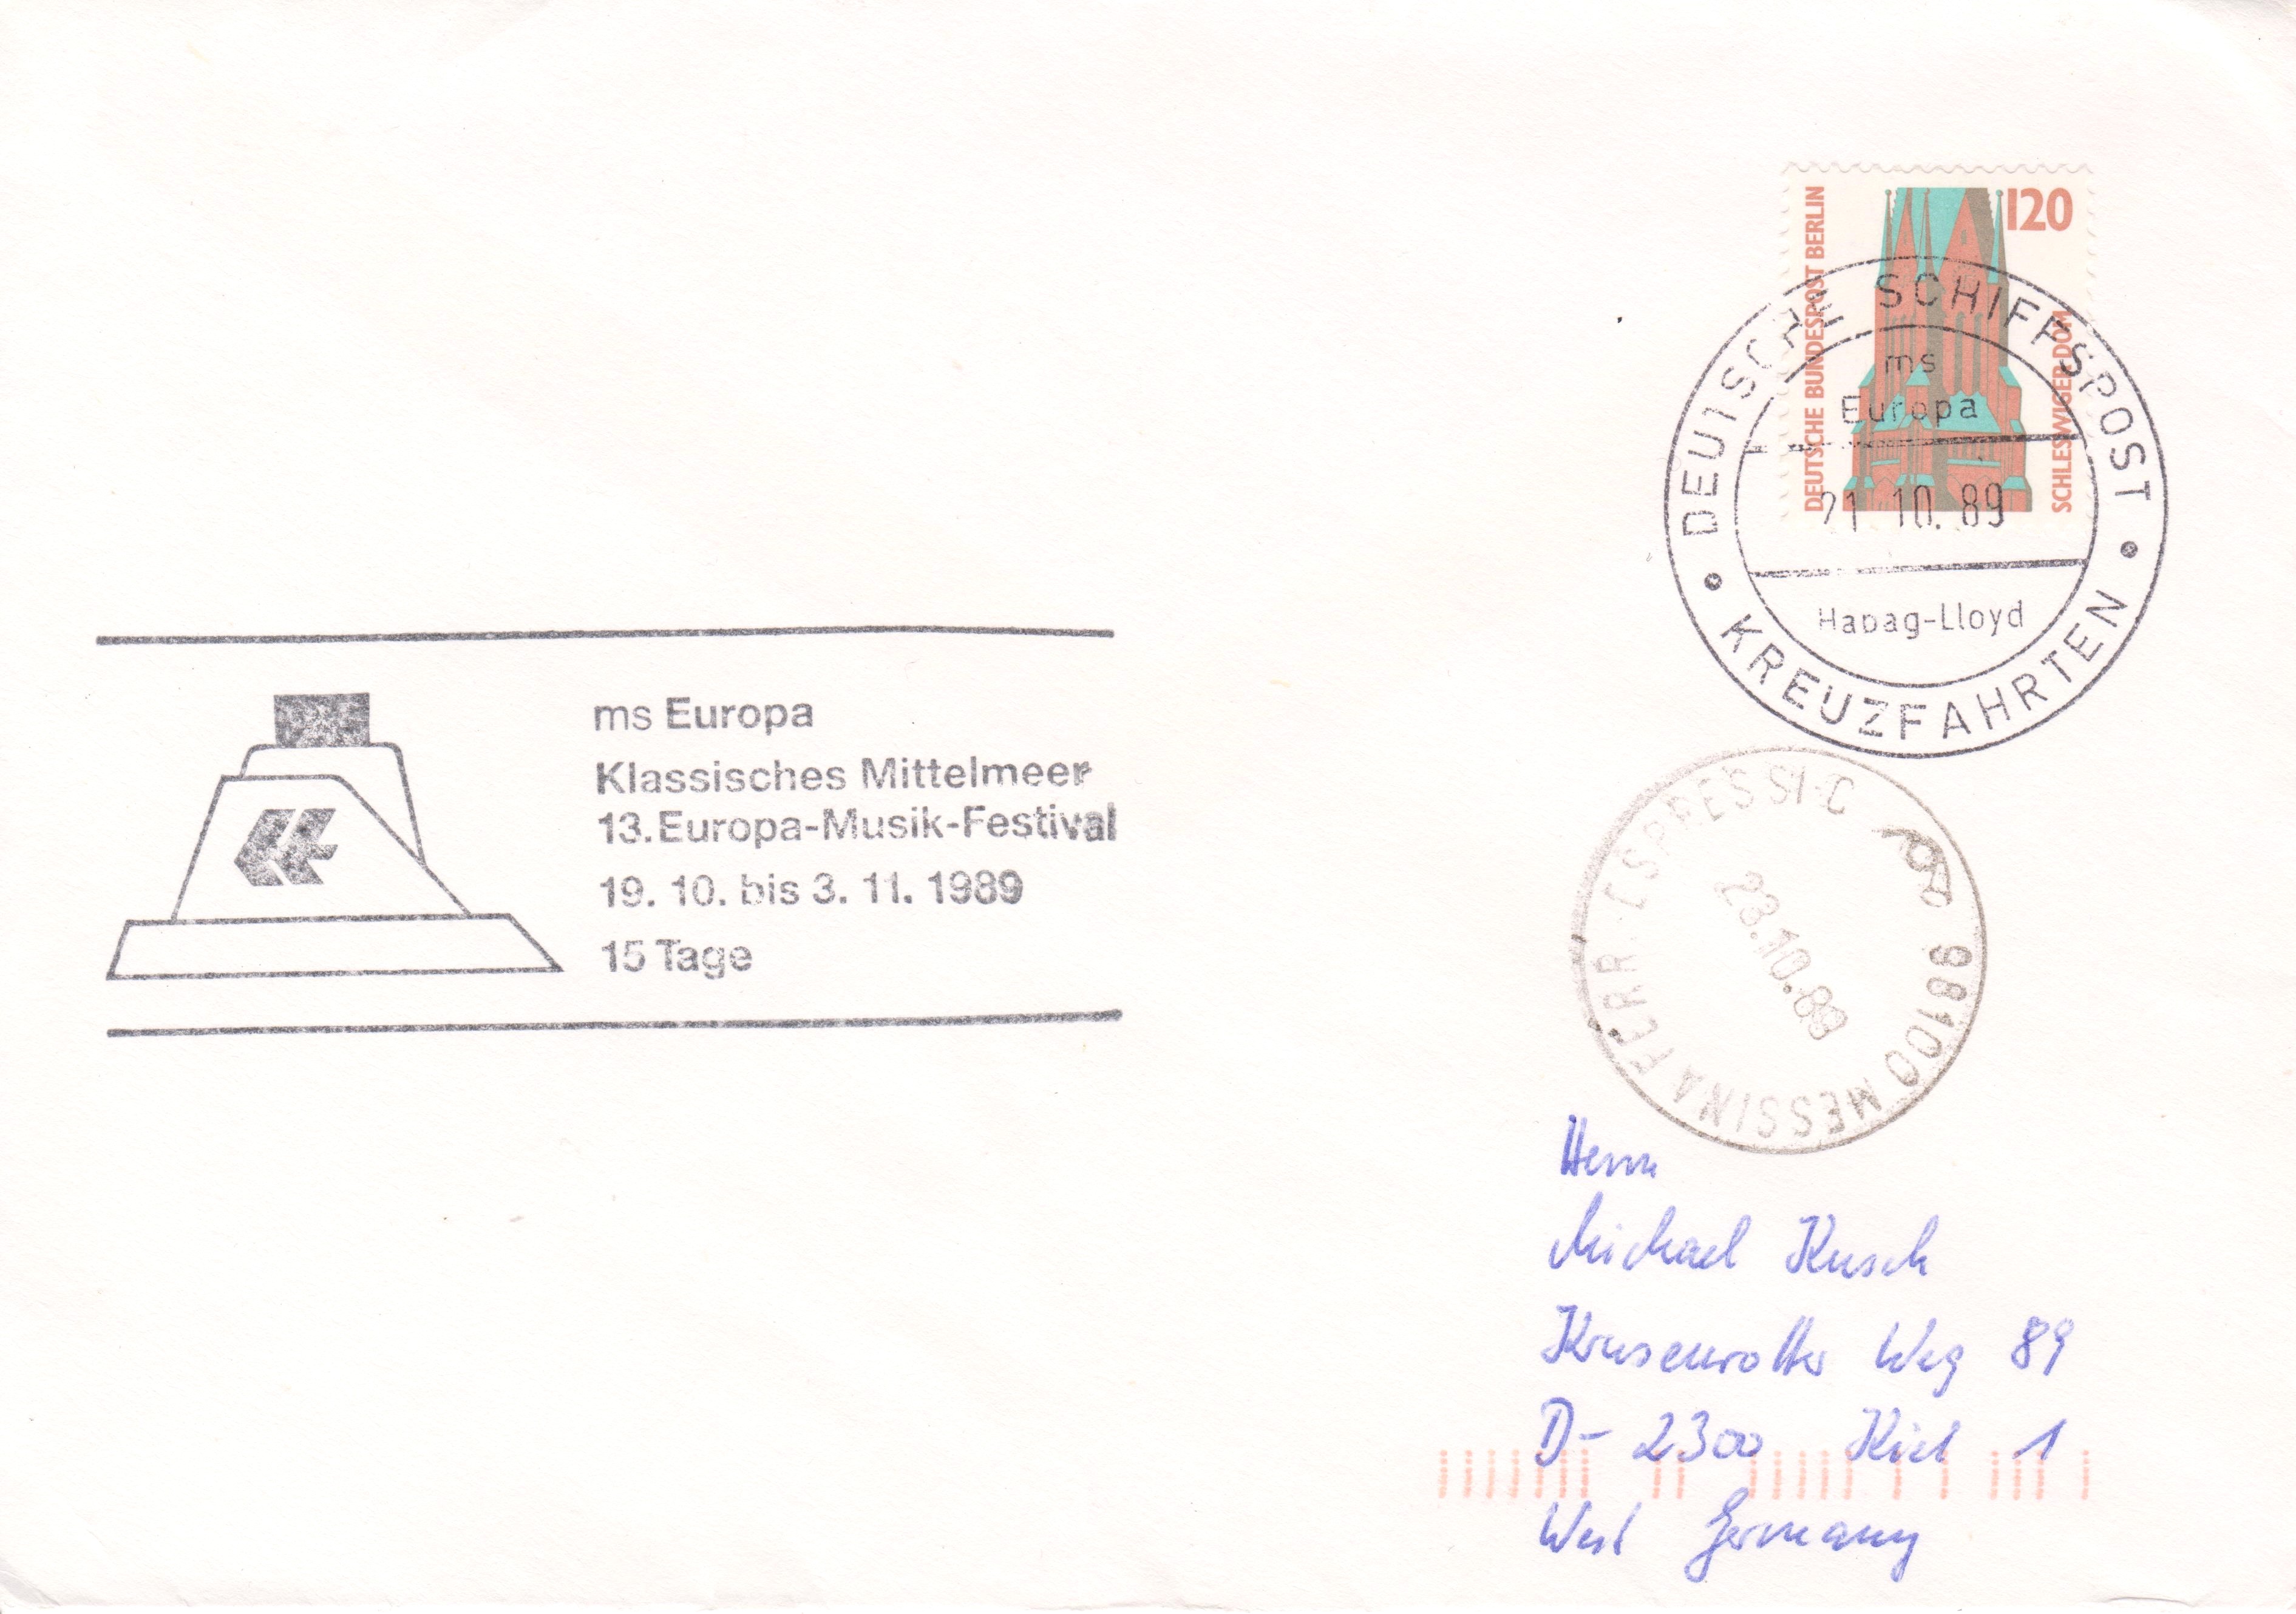 DEUTSCHE BUNDESPOST BERLIN
120
SCHLESWIGER DOM
DEUTSCHE SCHIFFSPOST
ms
Europa
21 10. 89
Hapag-Lloyd
• KREUZFAHRTEN •
ms Europa
Klassisches Mittelmeer
13. Europa-Musik-Festival
19. 10. bis 3. 11. 1989
15 Tage
98100 MESSINA FERR. ESPRESSI-C
23.10.89
Herrn
Michael Kusch
Krusenrotter Weg 89
D- 2300 Kiel 1
West Germany